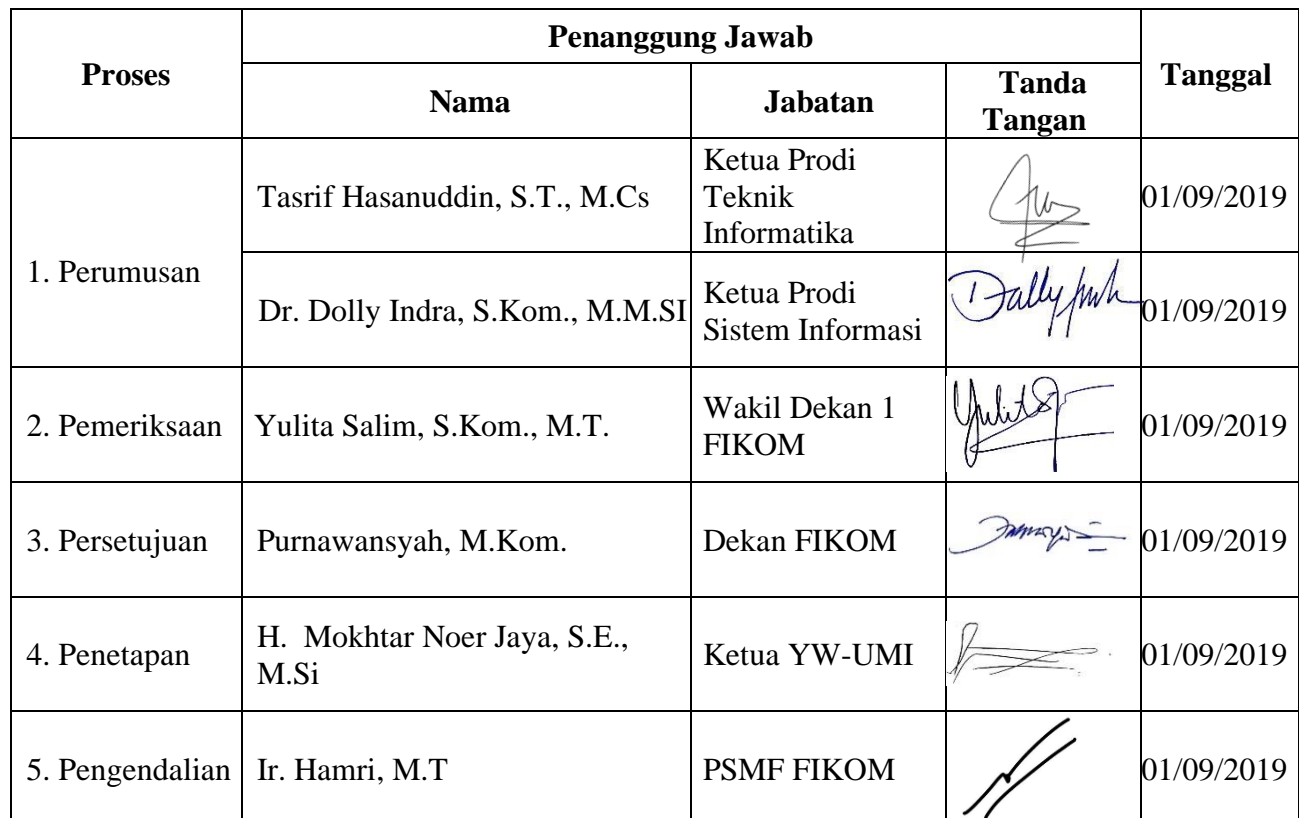 Proses
Penanggung Jawab
Tanggal
Nama
Jabatan
Tanda
Tangan
1. Perumusan
Tasrif Hasanuddin, S.T., M.Cs
Ketua Prodi
Teknik
Informatika
01/09/2019
Dr. Dolly Indra, S.Kom., M.M.SI
Ketua Prodi
Sistem Informasi
01/09/2019
2. Pemeriksaan
Yulita Salim, S.Kom., M.T.
Wakil Dekan 1
FIKOM
01/09/2019
3. Persetujuan
Purnawansyah, M.Kom.
Dekan FIKOM
01/09/2019
4. Penetapan
H.  Mokhtar Noer Jaya, S.E.,
M.Si
Ketua YW-UMI
01/09/2019
5. Pengendalian
Ir. Hamri, M.T
PSMF FIKOM
01/09/2019